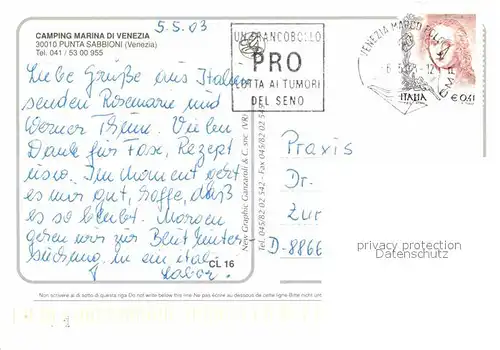 5.5.03
CAMPING MARINA DI VENEZIA
30010 PUNTA SABBIONI (Venezia)
Tel. 041 / 53 00 955
Liebe Grüße aus Italien
senden Rosemarie und
Werner
Vielen
Dank für Fax, Rezept
usw. Im Moment geht
es mir gut, hoffe, daß
es so bleibt. Morgen
gehen wir zur Blutunter
suchung in ein ital.
Labor.
CL 16
New Graphic Ganzaroli & C. snc. (VR)
Tel. 045/82 02 542 - Fax 045/82 02 545
UN FRANCOBOLLO
PRO
LOTTA AI TUMORI
DEL SENO
VENEZIA MARCO
ITALIA
€ 0,41
Praxis
Dr.
Zur
D-8866
privacy protection
Datenschutz
Non scrivere al di sotto di questa riga Do not write below this line Ne pas écrire au dessous de cette ligne Bitte nicht